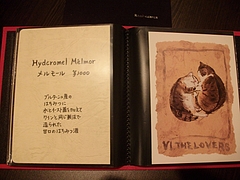 Hydromel Mälmor
メルモール ¥1000
ブルターニュ産の
はちみつに
水とイースト菌を加えて
ワインと同じ製法で
造られた
甘口のはちみつ酒
VI THE LOVERS